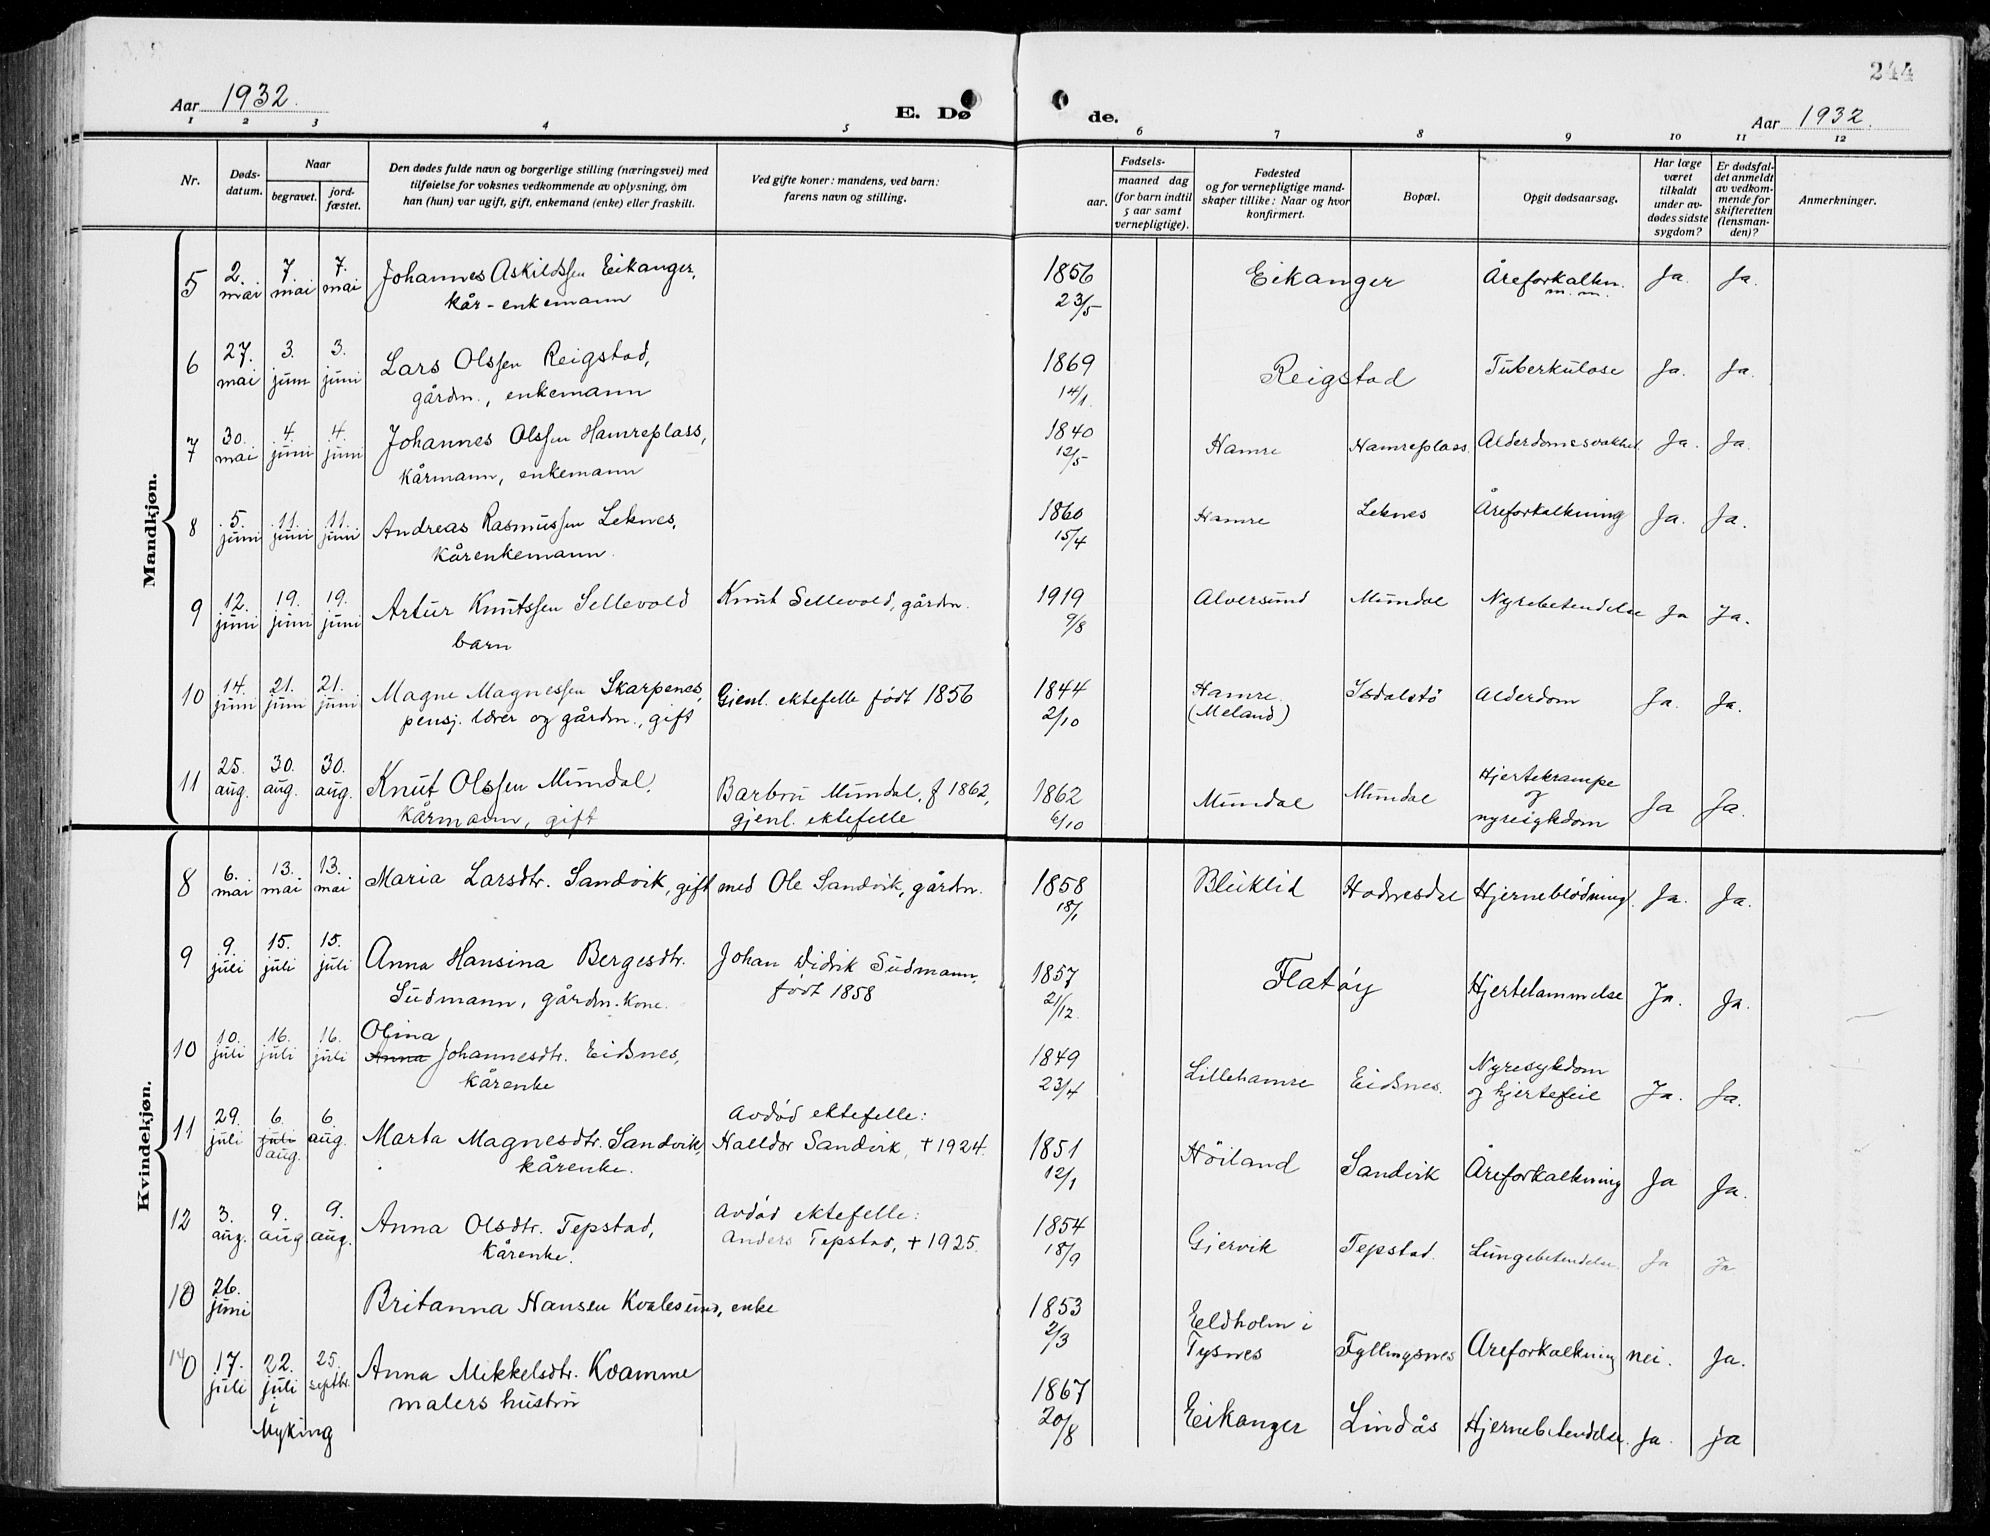 244
Aar 1932.
E. Døde.
Aar 1932.
1 2 3 4 5 6 7 8 9 10 11 12
Nr.
Døds-
datum.
Naar
begravet.
jord-
fæstet.
Den dødes fulde navn og borgerlige stilling (næringsvei) med
tilføielse for voksnes vedkommende av oplysning, om
han (hun) var ugift, gift, enkemand (enke) eller fraskilt.
Ved gifte koner: mandens, ved barn:
farens navn og stilling.
Fødsels-
aar.
maaned dag
(for barn indtil
5 aar samt
vernepligtige).
Fødested
og for vernepligtige mand-
skaper tillike: Naar og hvor
konfirmert.
Bopæl.
Opgit dødsaarsag.
Har læge
været
tilkaldt
under av-
dødes sidste
sygdom?
Er dødsfal-
det anmeldt
av vedkom-
mende for
skifteretten
(lensman-
den)?
Anmerkninger.
Mandkjøn.
5 2. mai 7. mai 7. mai Johannes Askildssen Eikanger, 1856 Eikanger Åreforkalkn. Ja. Ja.
kår-enkemann 23/5 m.m.
6 27. mai 3. juni 3. juni Lars Olssen Reigstad, 1869 Reigstad Tuberkulose Ja. Ja.
gårdm., enkemann 14/1.
7 30. mai 4. juni 4. juni Johannes Olssen Hamreplass, 1840 Hamre Hamreplass. Alderdomssvakhet. Ja. Ja.
Kårmann, enkemann 12/5
8 5. juni 11. juni 11. juni Andreas Rasmussen Leknes, 1860 Hamre Leknes Åreforkalkning Ja. Ja.
Kårenkemann. 15/4
9 12. juni 19. juni 19. juni Artur Knutssen Sellevold Knut Sellevold, gårdm. 1919 Alversund Mundal Nyrebetendelse Ja Ja.
barn 9/8
10 14. juni 21. juni 21. juni Magne Magnessen Skarpenes, Gjenl. ektefelle født 1856 1844 Hamre Isdalstø Alderdom Ja. Ja.
pensj. lærer og gårdm., gift 2/10 (Meland)
11 25. aug. 30. aug. 30. aug. Knut Olssen Mundal, Barbru Mundal, f 1862, 1862 Mundal Mundal Hjertekrampe Ja Ja.
Kårmann, gift gjenl. ektefelle 6/10 og
nyresykdom
Kvindekjøn.
8 6. mai 13. mai 13. mai Maria Larsdtr. Sandvik, gift med Ole Sandvik, gårdm. 1858 Bleiklid Hodnesdal Hjerneblødning. Ja. Ja.
18/1
9 9. juli 15. juli 15. juli Anna Hansina Bergesdtr. Johan Didrik Sudmann, 1857 Flatøy Hjertelammelse Ja. Ja.
Sudmann, gårdm. kone. født 1858 21/12.
10 10. juli 16. juli 16. juli Olina
Anna Johannesdtr. Eidsnes, 1849 Lillehamre Eidsnes. Nyresykdom Ja. Ja.
kårenke 23/4 og hjertefeil
11 29. juli 6. juli aug. 6 aug. Marta Magnesdtr. Sandvik, Avdød ektefelle:
kårenke. Halldor Sandvik, † 1924. 1851 Høiland Sandvik Åreforkalkning Ja Ja.
12/1
12 3. aug. 9. aug 9. aug. Anna Olsdtr. Tepstad, Avdød ektefelle: 1854 Gjervik Tepstad. Lungebetendelse Ja Ja
Kårenke. Anders Tepstad, † 1925. 18/9
26. juni Britanna Hansen Kvalesund, enke 1853 Eldholm i
2/3 Tysnes Fyllingsnes Åreforkalkning nei. Ja.
17. juli 22. juli i Myking 25. septbr. Anna Mikkelsdtr. Kvamme 1867
malers hustru 20/8 Eikanger Lindås Hjernebetendelse. Ja. Ja